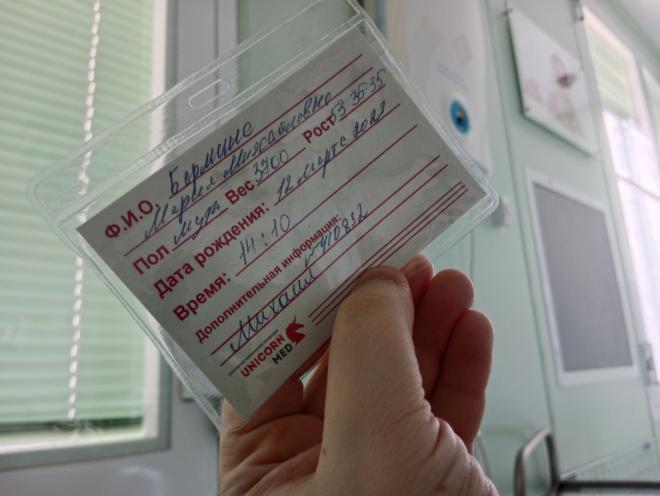 Ф.И.О. Бермино
Мария Михайловна
Пол муж Вес 3700 Рост 53 35 35
Дата рождения: 12 марта 2022
Время: 14:10
Дополнительная информация:
Михаил №410832
UNICORN
MED